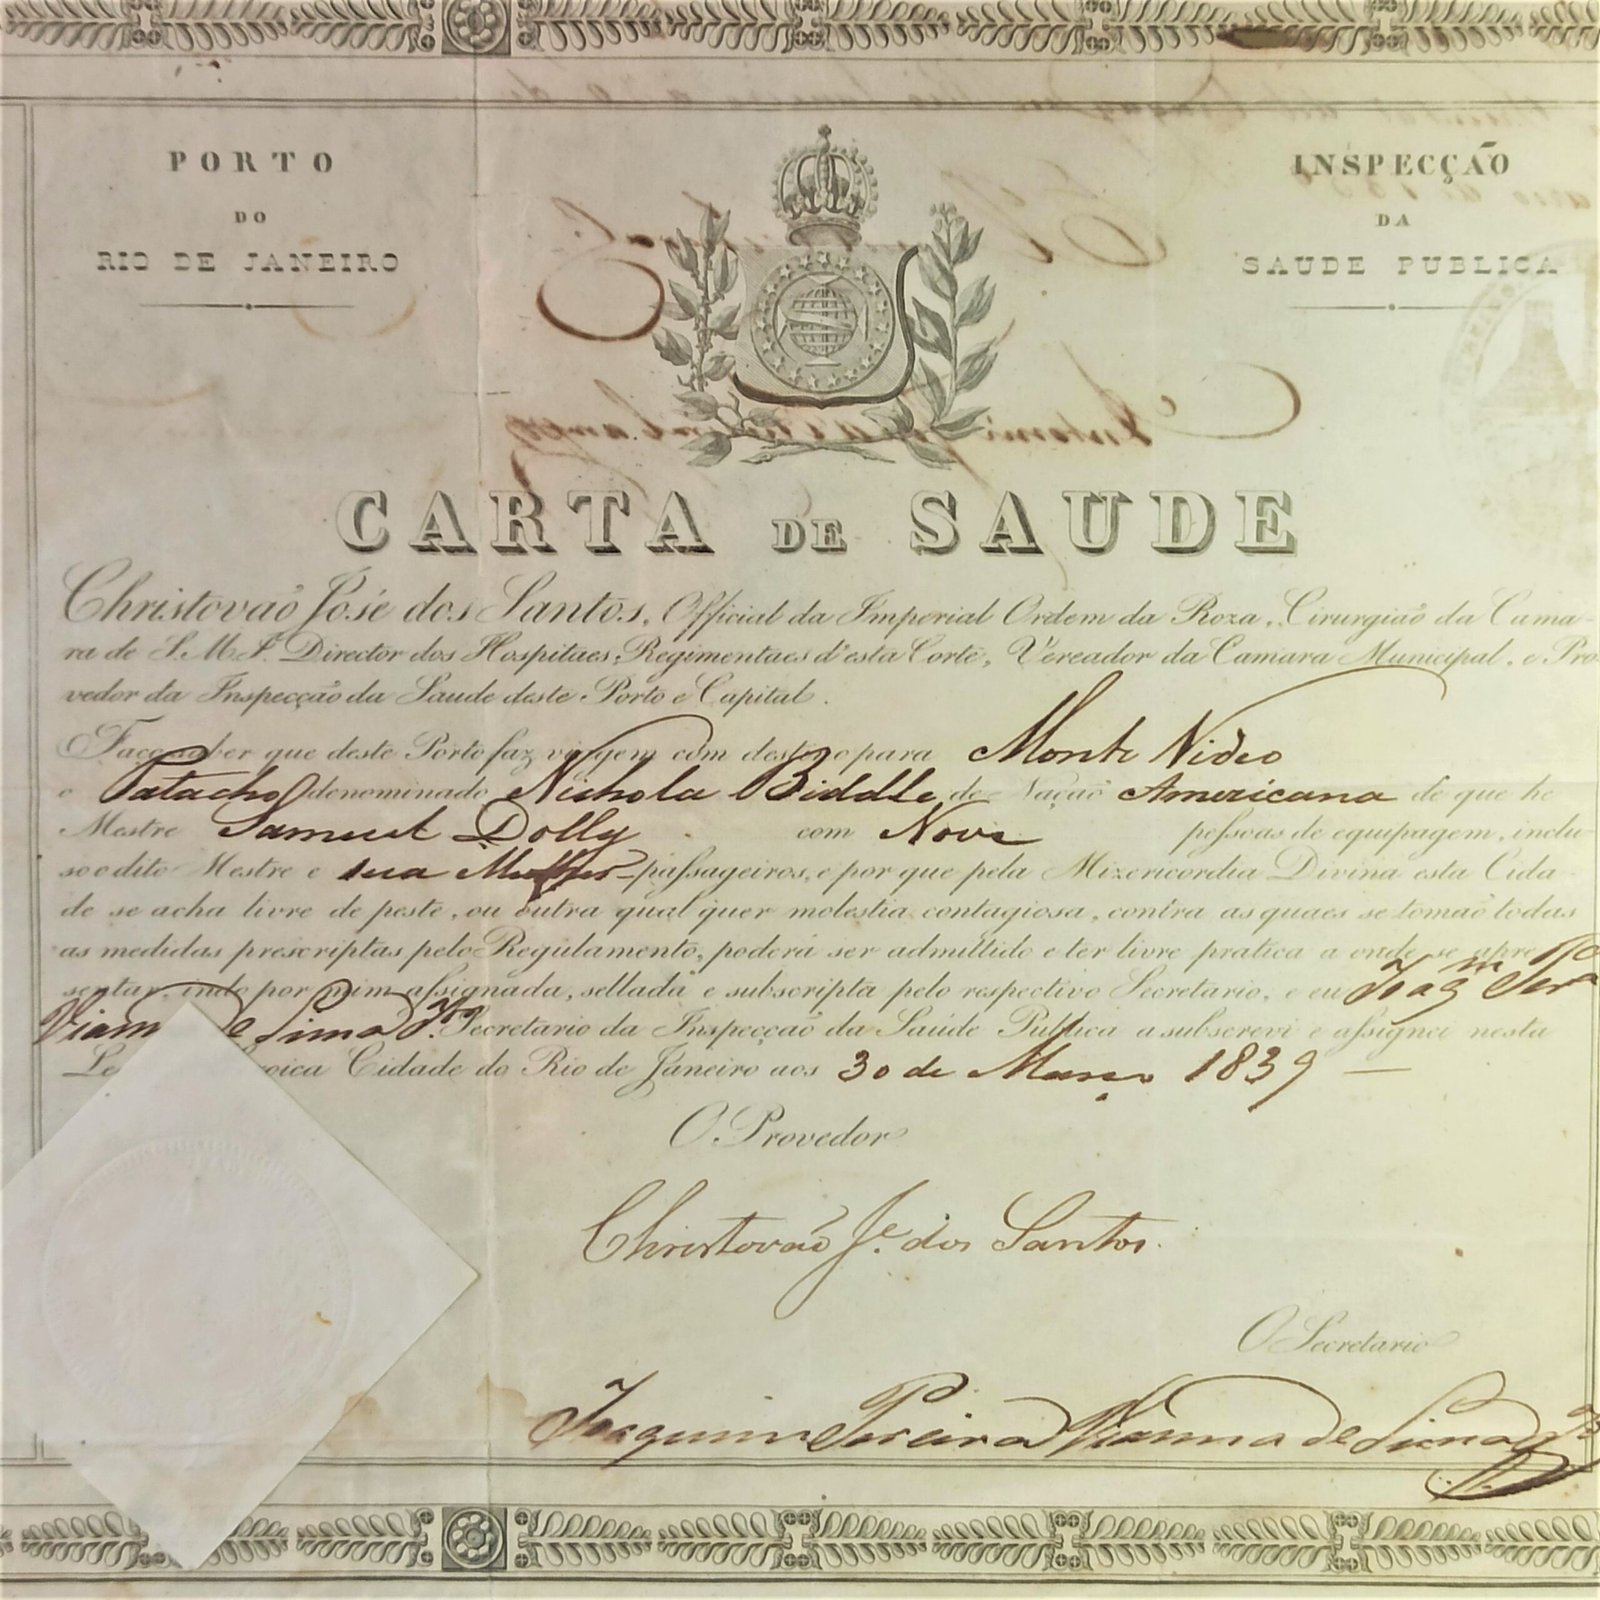 PORTO
DO
RIO DE JANEIRO
INSPECÇÃO
DA
SAUDE PUBLICA
CARTA DE SAUDE
Christovaõ José dos Santos, Official da Imperial Ordem da Roza, Cirurgiaõ da Cama-
ra de S.M.I. Director dos Hospitaes, Regimentaes d'esta Corte, Vereador da Camara Municipal, e Pro-
vedor da Inspecçaõ da Saude deste Porto e Capital.
Faço saber que deste Porto faz viagem com destino para Monte Video
o Patacho denominado Nichola Biddle de Naçaõ Americana de que he
Mestre Samuel Dolly com Nove pessoas de equipagem, inclu-
so o dito Mestre e sua Mulher passageiros, e por que pela Mizericordia Divina esta Cida-
de se acha livre de peste, ou outra qual quer molestia contagiosa, contra as quaes se tomaõ todas
as medidas prescriptas pelo Regulamento, poderá ser admittido e ter livre pratica a onde se apre
sentar, indo por mim assignada, sellada e subscripta pelo respectivo Secretario, e eu Joaqm Pera
Viana de Lima Secretario da Inspecçaõ da Saúde Publica a subscrevi e assignei nesta
Le oica Cidade do Rio de Janeiro aos 30 de Março 1839
O Provedor
Christovaõ Je. dos Santos.
O Secretario
Joaquim Pereira Vianna de Lima